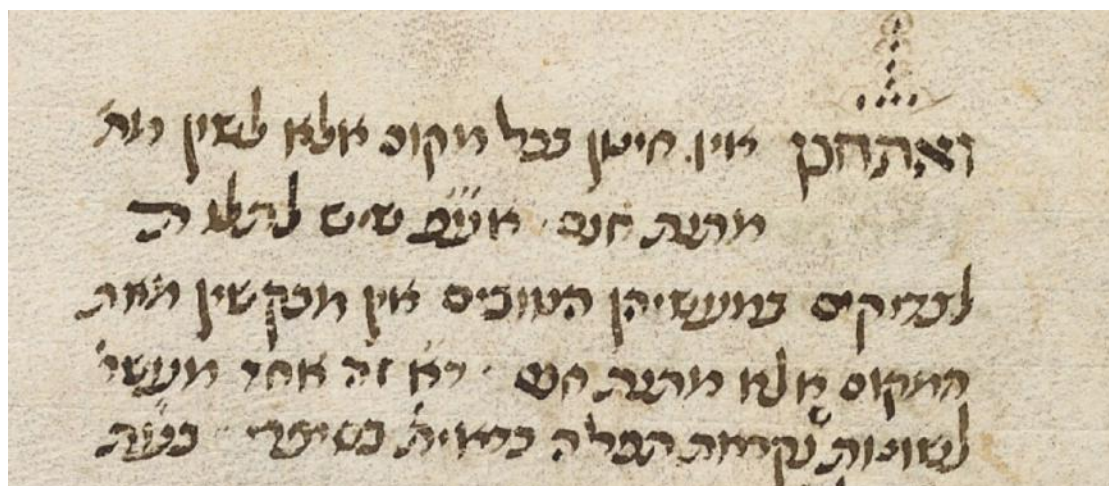 ואתחנן אין חינון בכל מקום אלא לשון מת'
מתנת חנם · אע״פ שיש לתלות
לצדיקים במעשיהן הטובים אין מבקשין מאת
המקום אלא מתנת חנם · ד״א זה אחד מעשר'
לשונות שנקראת תפלה כדאית' בסיפרי · בעת